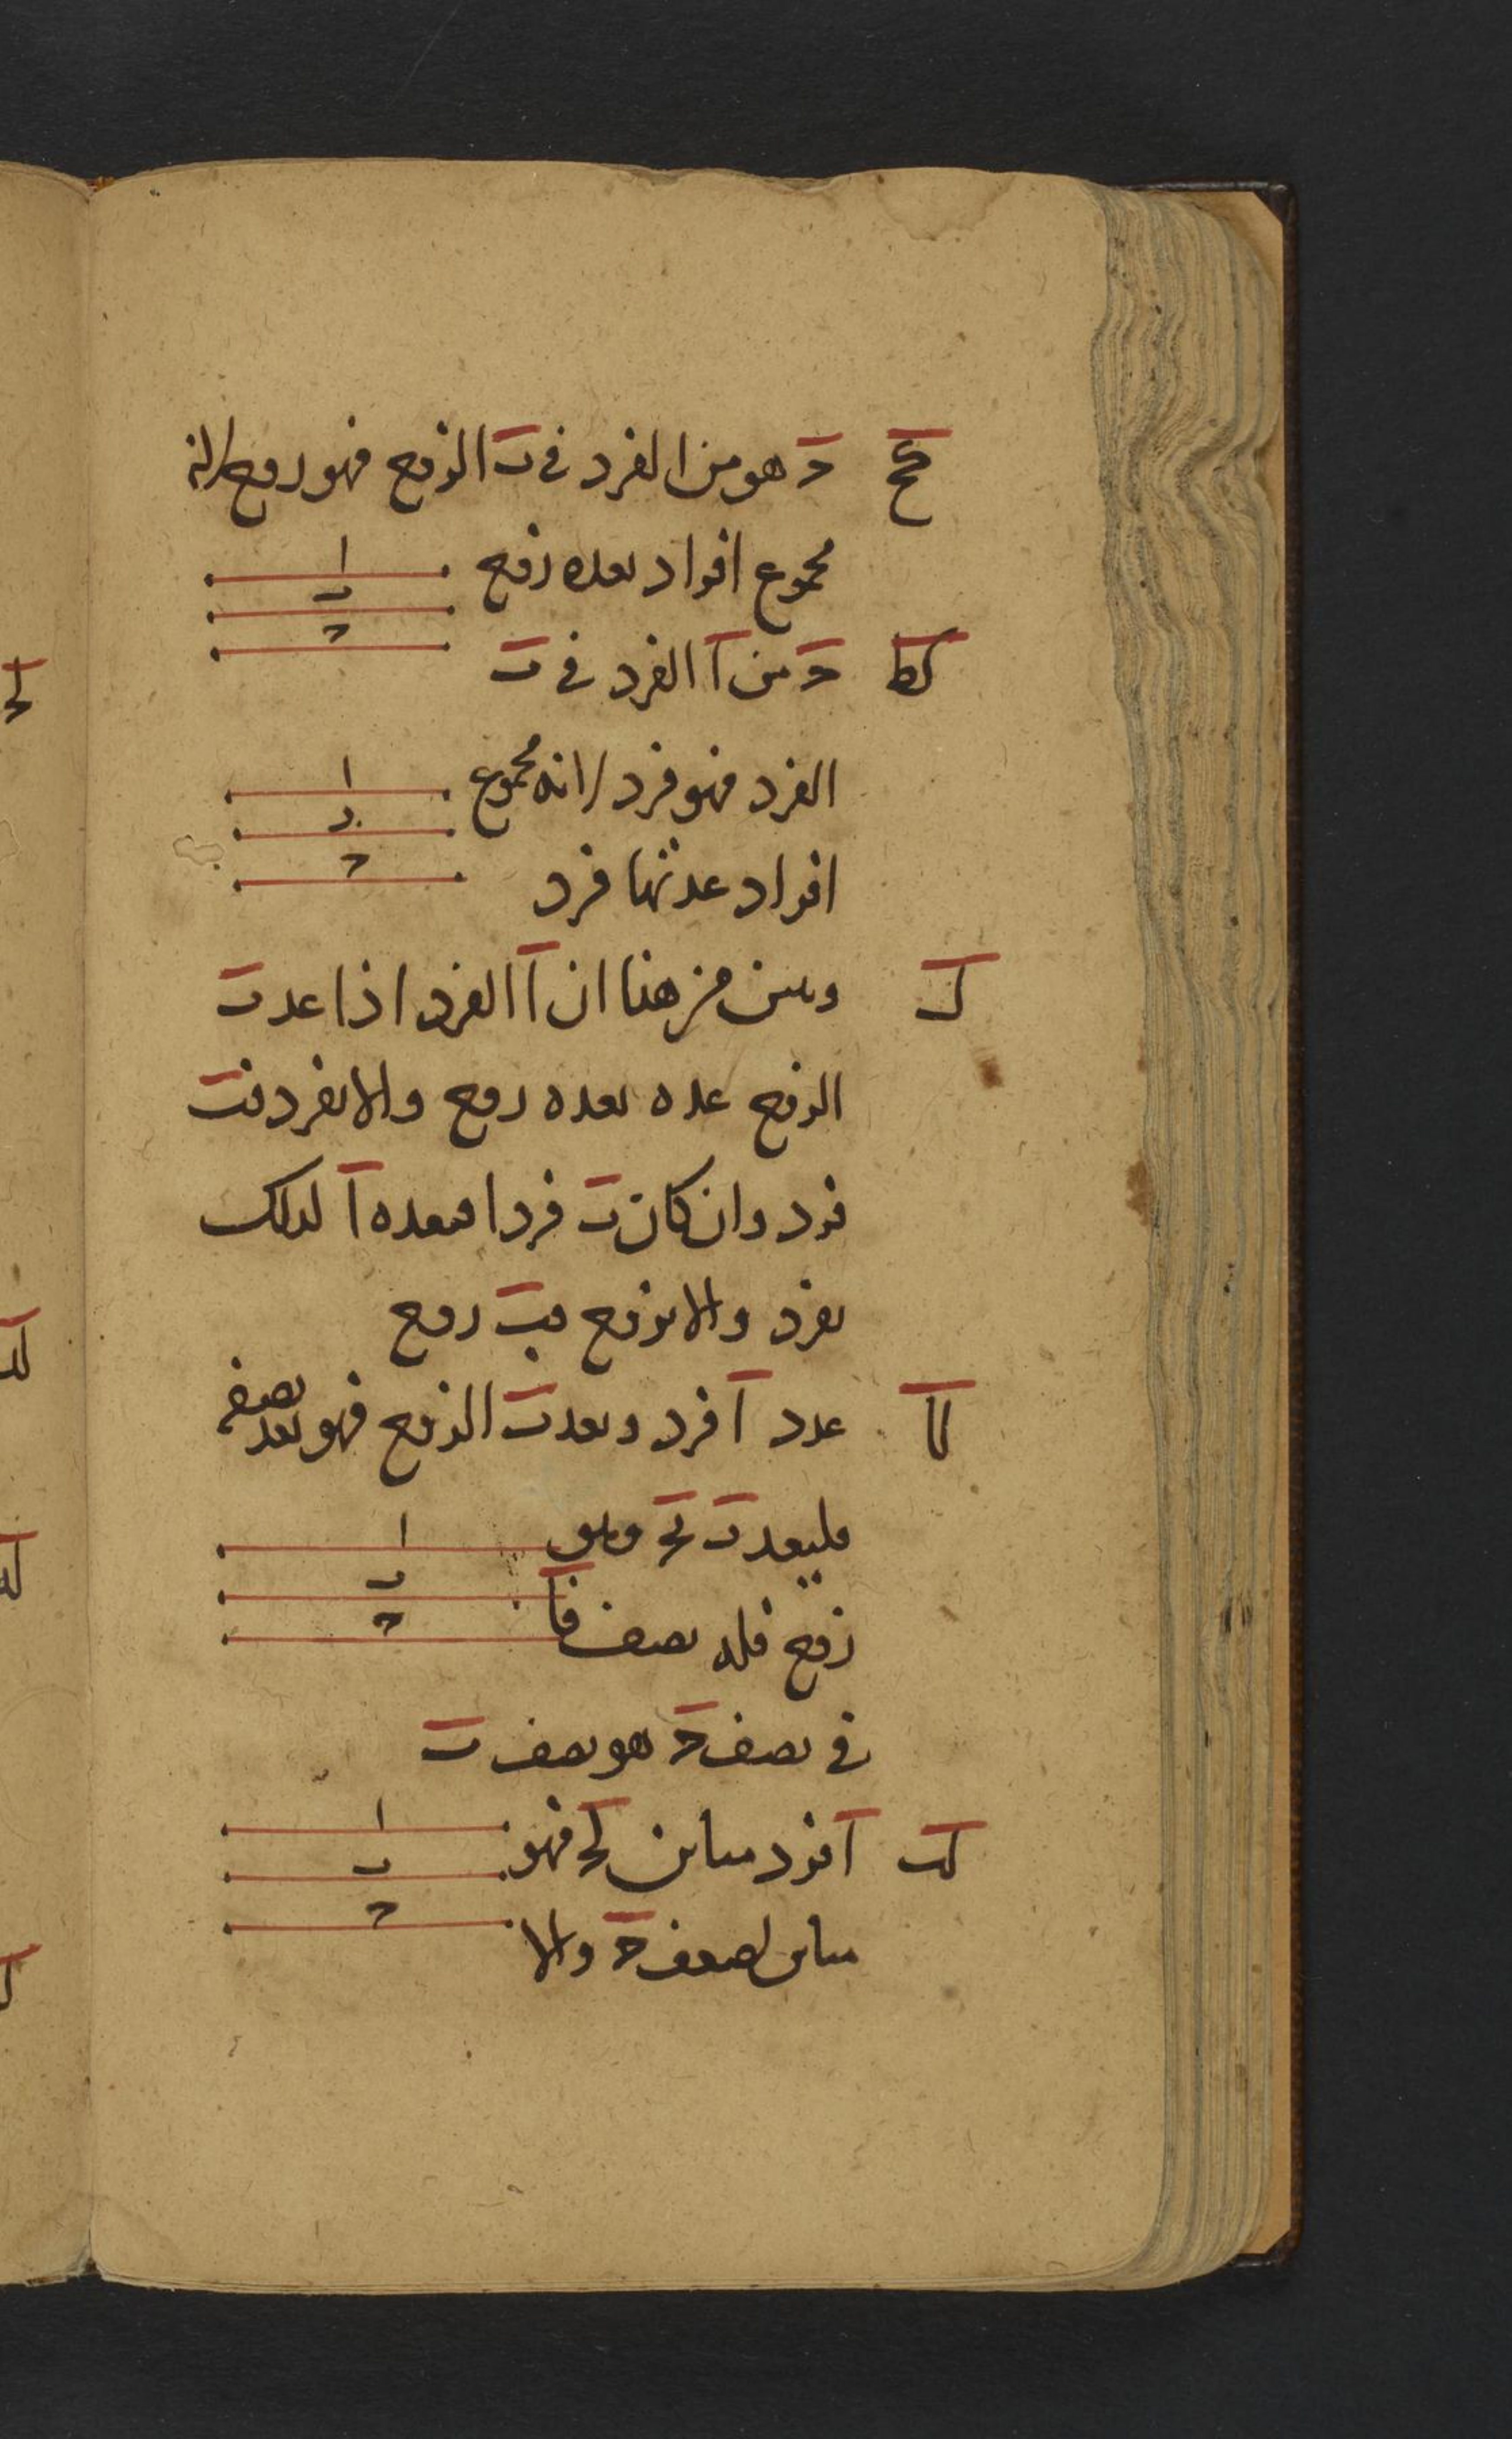 كح ح هو من ا لفرد في ب الزوج فهو زوج لانه
مجموع افراد بعده زوج
ا
ب
ح
كط ح من ا الفرد في ب
الفرد فهو فرد لانه مجموع
ا
ب
ح
افراد عدتها فرد
ل وبين من هنا ان ا الفرد اذا عد ب
الزوج عده بعده زوج والا بفرد فب
فرد وان كان ب فردا فيعده ا لذلك
بفرد والا بزوج فب زوج
لا عدد ا فرد ويعد ب الزوج فهو يعد نصفه
فليعد ب بح وهو
زوج فله نصف فا
ا
ب
ح
في نصف ح هو نصف ب
لب ا فرد مباين لح فهو
مباين لضعف ح والا
ا
ب
ح